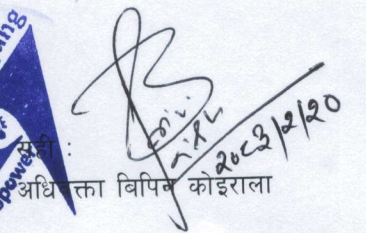 सही :
२०८३/२/२०
अधिवक्ता बिपिन कोइराला